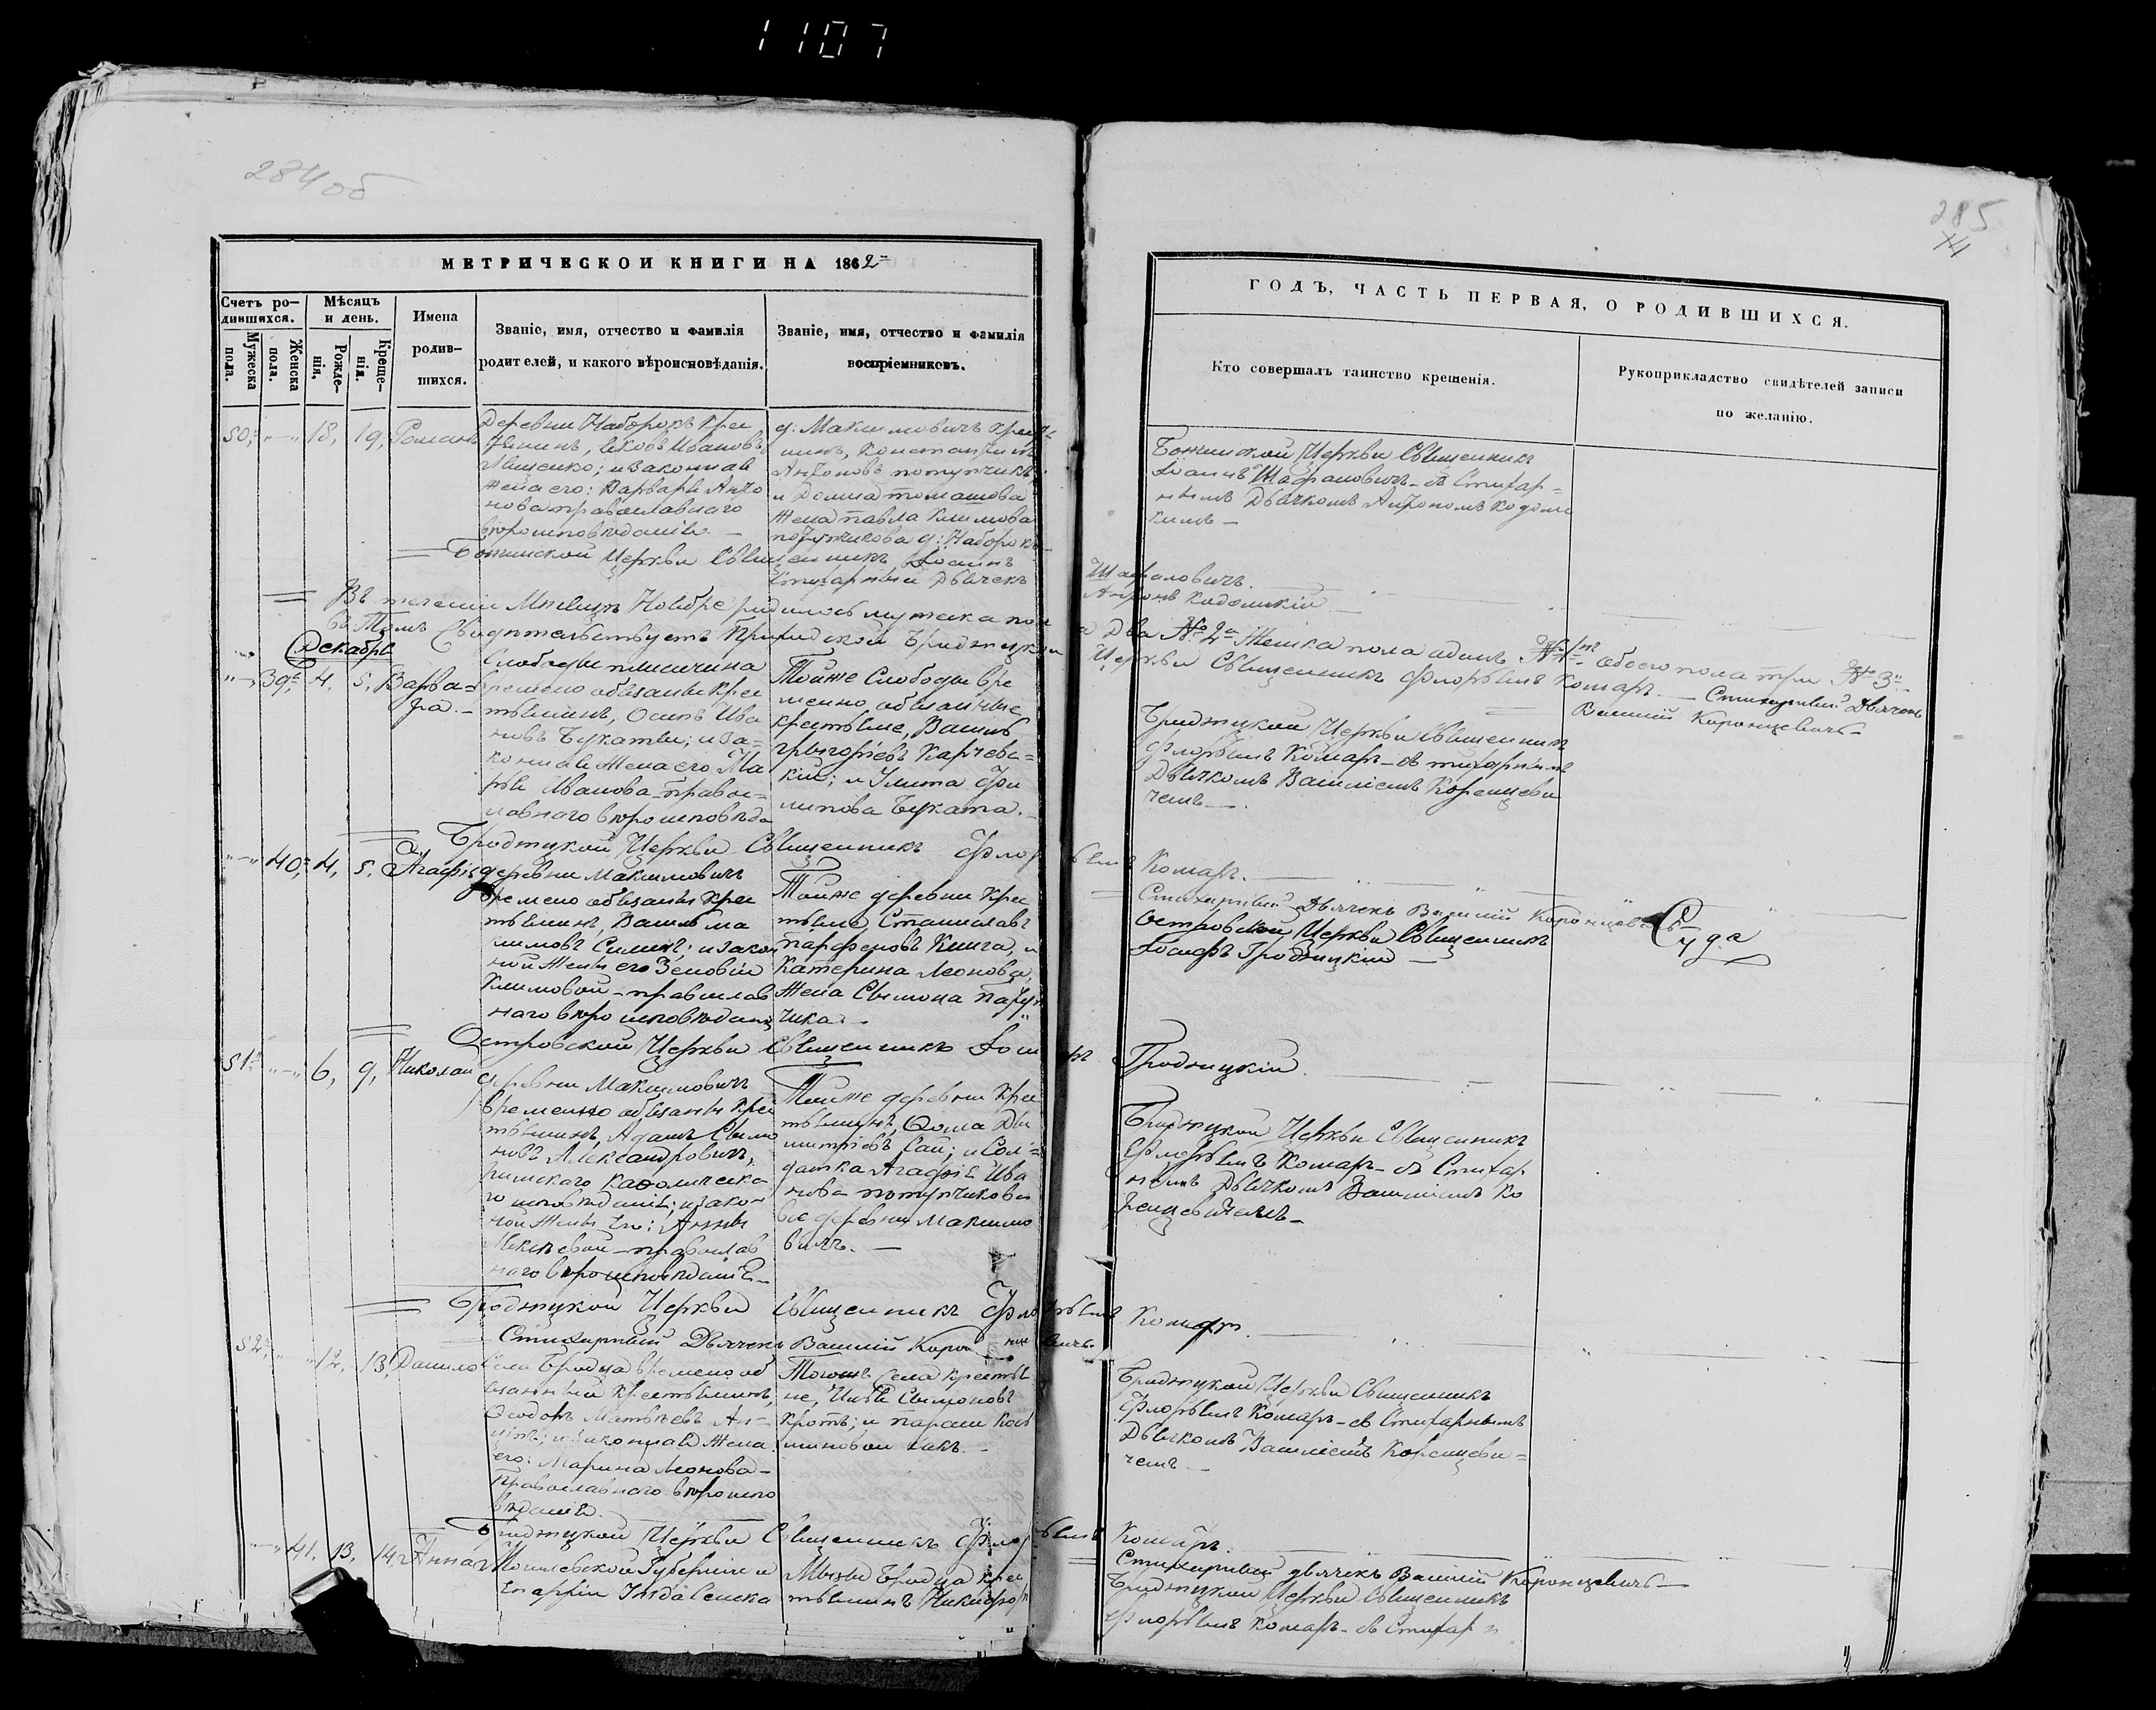 1107
284 об
285
МЕТРИЧЕСКОЙ КНИГИ НА 1862
ГОДЪ, ЧАСТЬ ПЕРВАЯ, О РОДИВШИХСЯ.
Счетъ ро-
дившихся.
Мужеска
пола.
Женска
пола.
Мѣсяцъ
и день.
Рожде-
нія.
Креще-
нія.
Имена
родив-
шихся.
Званіе, имя, отчество и фамилія
родителей, и какого вѣроисповѣданія.
Званіе, имя, отчество и фамилія
воспріемниковъ.
Кто совершалъ таинство крещенія.
Рукоприкладство свидѣтелей записи
по желанію.
50, 18, 19, Романъ
Деревни Наборокъ крес
Иванова
Ященко; изаконная
жена его: Варвара Анто
нова православнаго
вѣроисповѣданія. —
д: Максимовичъ
Антоновъ потупчикъ
и Домна томашова
жена павла климова
д: Наборокъ
священникъ
Іоаннъ Шафрановичъ — съ Стихар=
нымъ Дьячкомъ Антономъ
Церкви Священникъ Іоаннъ
Шафаловичъ.
Стихарный Дьячекъ
Антонъ
Въ теченіи Мѣсяцѣ Ноябре родилось мужеска пол
а два № 2 Женска пола адинъ № 1 обоего пола три № 3
въ Томъ Свидѣтельствуетъ Приходской Бродзецкой
Церкви Священникъ Флоръянъ Комаръ — Стихарный Дьячекъ
Василій Коронцевичъ
Декабрь
39, 4, 5, Варва=
ра. —
Слободы
временно обязаны крес
тьянинъ, Осипъ Ива
новъ Букаты; иза=
конная Жена его Ма
рья Иванова — правос=
лавнаго вѣроисповѣда
Тойже Слободы вре
менно обязанные
крестьяне, Василь
григорьевъ Карчевс=
кій; и Улита Фи
липова Буката. —
Бродзецкой Церкви священникъ
Флорьянъ Комаръ — съ стихарнымъ
Дьячкомъ Василіемъ Коренцеви
чемъ —.
Бродзецкой Церкви Священникъ Флорьянъ Комаръ.
Стихарный Дьячекъ Василій Коронцевичъ
40, 4, 5, Агафія
деревни Максимовичъ
времено обязаны крес
тьянинъ, Василь ма
симовъ Силичъ; изакон
ной Жены его Зеновіи
Климовой — православ
наго вѣроисповѣдани
Тойже деревни крес
тьяне Станиславъ
парфеновъ Книга, и
Катерина Леонова,
Жена Сымона патуп
чика. —
Островской Церкви Священникъ
Іосифъ Гродзицкій —
Суда
Островской Церкви Священникъ Іосифъ Гродзицкій.
51, 6, 9, Николай
деревни Максимовичъ
временно обязаны крес
тьянинъ, Адамъ Сымо
новъ Александровичъ,
римскаго католическа
го исповѣданія; изакон
ной Жены Его: Анны
православ
наго вѣроисповѣданія —
Тойже деревни крес
тьянинъ, Ѳома Ды
митріевъ Сай; и Сол=
датка Агафія Ива
нова потупчикова
все деревни Максимо
вичъ. —
Бродзецкой Церкви Священникъ
Флорьянъ Комаръ — съ Стихар
нымъ Дьячкомъ Василіемъ Ко
ренцевичемъ —
Бродзецкой Церкви Священникъ Флорьянъ Комаръ.
Стихарный Дьячекъ Василій Коронцевичъ.
52, 12, 13, Данило
Села Бродца времено об
язанный крестьянинъ,
Ѳеодоръ Матвѣевъ
изаконная Жена
его: Марина Леонова —
Православнаго вѣроиспо
вѣданія.
Тогоже Села крестья
не, Сымоновъ
кротъ; и параси
Бродзецкой Церкви Священникъ
Флорьянъ Комаръ — съ Стихарнымъ
Дьячкомъ Василіемъ Коренцеви=
чемъ —
Бродзецкой Церкви Священникъ Флорьянъ Комаръ.
Стихарный дьячекъ Василій Коронцевичъ —
41, 13, 14, Анна
Могилевской Губерніи и
Епархіи Уѣзда Сенска
Мызы Бродца крес
тьянинъ Никифор
Бродзецкой Церкви Священникъ
Флорьянъ Комаръ — съ Стихар